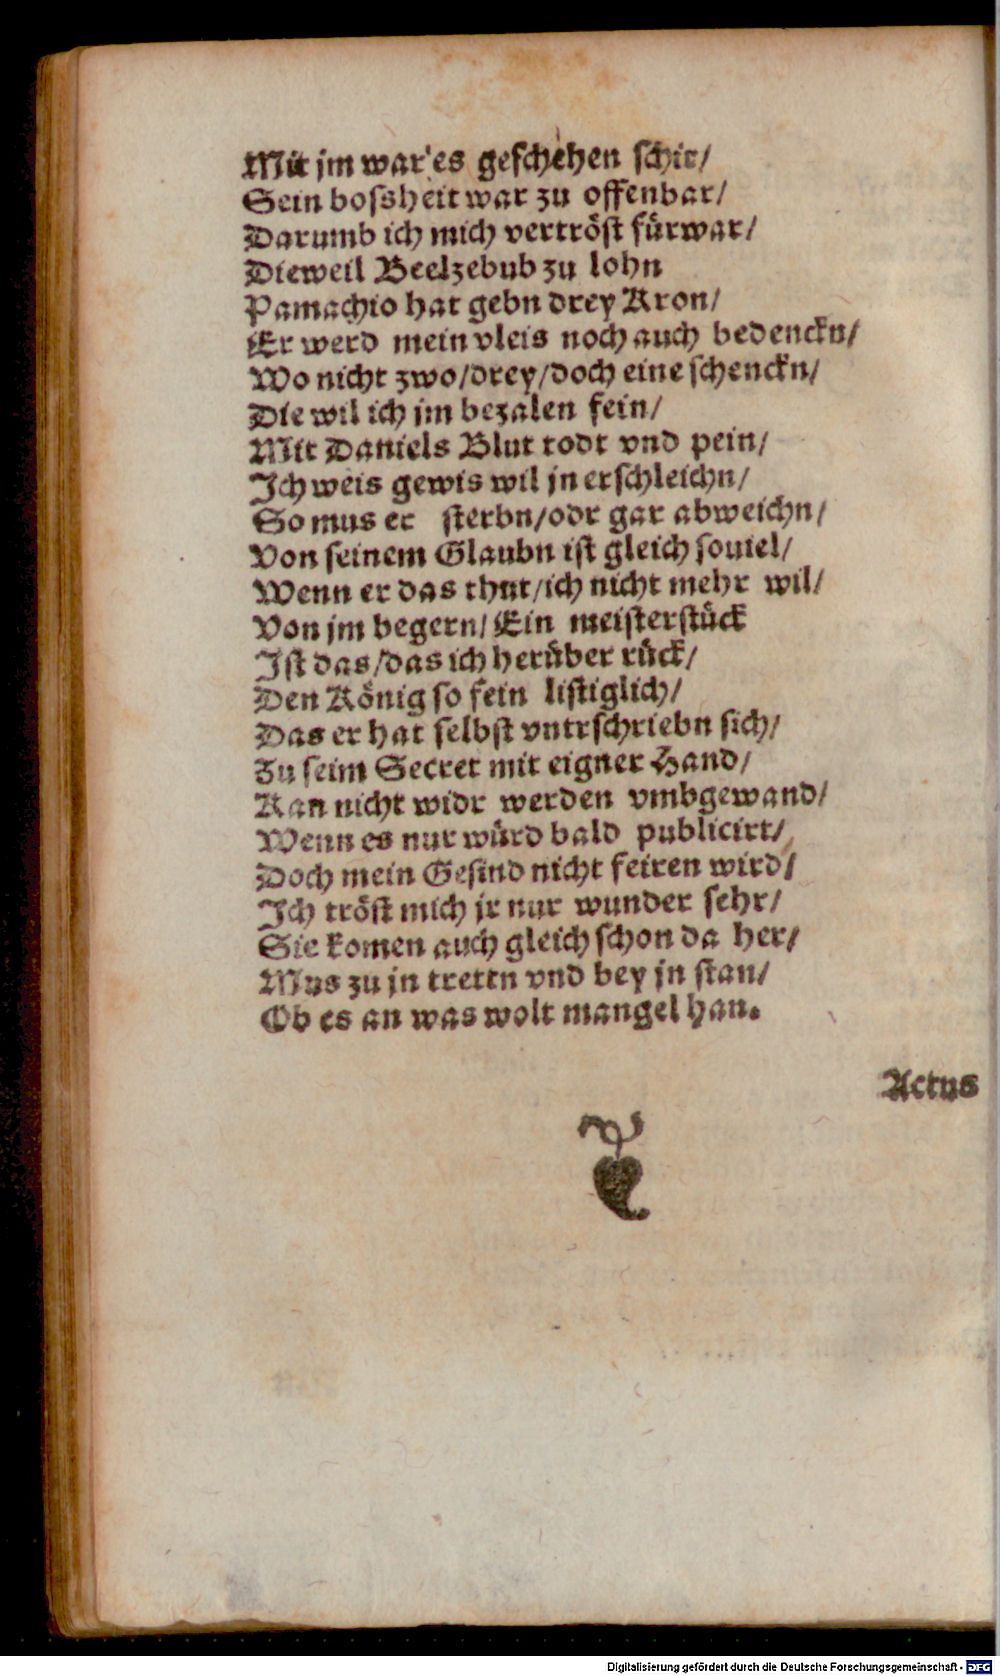 Mit jm war es geschehen schir/
Sein bossheit war zu offenbar/
Darumb ich mich vertröst fürwar/
Dieweil Beelzebub zu lohn
Pamachio hat gebn drey Kron/
Er werd mein vleis noch auch bedenckn/
Wo nicht zwo/drey/doch eine schenckn/
Die wil ich jm bezalen fein/
Mit Daniels Blut todt vnd pein/
Ich weis gewis wil jn erschleichn/
So mus er sterbn/odr gar abweichn/
Von seinem Glaubn ist gleich souiel/
Wenn er das thut/ich nicht mehr wil/
Von jm begern/Ein meisterstück
Ist das/das ich herüber rück/
Den König so fein listiglich/
Das er hat selbst vntrschriebn sich/
Zu seim Secret mit eigner Hand/
Kan nicht widr werden vmbgewand/
Wenn es nur würd bald publicirt/
Doch mein Gesind nicht feiren wird/
Ich tröst mich jr nur wunder sehr/
Sie komen auch gleich schon da her/
Mus zu jn trettn vnd bey jn stan/
Ob es an was wolt mangel han.
Actus
Digitalisierung gefördert durch die Deutsche Forschungsgemeinschaft - DFG